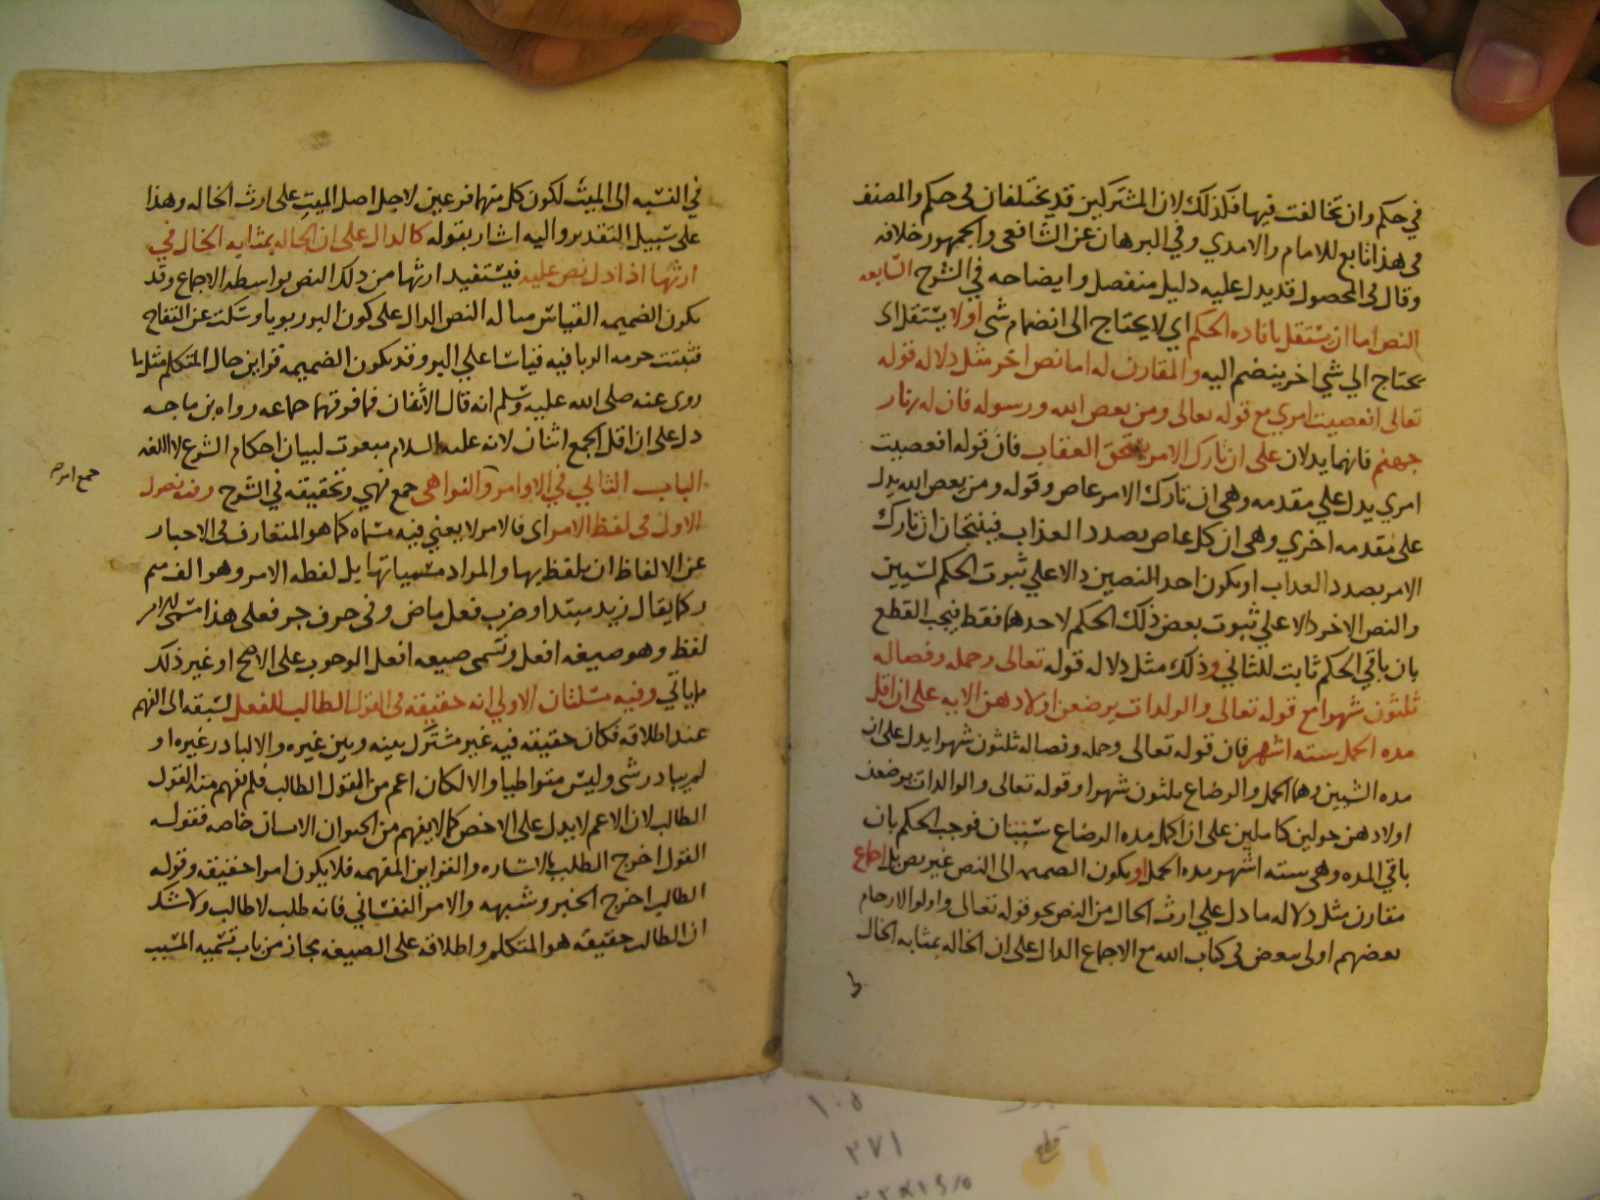 في حكم وان تخالفت فيها فلذلك لان المشتركين قد يختلفان في حكم والمصنف
في هذا تابع للامام والامدي وفي البرهان عن الشافعي والجمهور خلافه
وقال في المحصول قد يدل عليه دليل منفصل وايضاحه في الشرح السابعه
النص اما ان يستقل بافاده الحكم اي لا يحتاج الى انضمام شي اولا يستقل اي
يحتاج الي شي اخر ينضم اليه والمقارن له اما نص اخر مثل دلاله قوله
تعالى افعصيت امري مع قوله تعالى ومن يعص الله ورسوله فان له نار
جهنم فانهما يدلان على ان تارك الامر يستحق العقاب فان قوله افعصيت
امري يدل علي مقدمه وهي ان تارك الامر عاص وقوله ومن يعص الله يدل
على مقدمه اخري وهي ان كل عاص بصدد العذاب فينتجان ان تارك
الامر بصدد العذاب او يكون احد النصين دالا علي ثبوت الحكم لشيين
والنص الاخر دالا علي ثبوت بعض ذلك الحكم لاحدهما فقط فيجب القطع
بان باقي الحكم ثابت للثاني وذلك مثل دلاله قوله تعالى وحمله وفصاله
ثلثون شهرا مع قوله تعالى والوالدات يرضعن اولادهن الايه على ان اقل
مده الحمل سته اشهر فان قوله تعالى وحمله وفصاله ثلثون شهرا يدل على ان
مده الشيين وهما الحمل والرضاع ثلثون شهرا وقوله تعالى والوالدات يرضعن
اولادهن حولين كاملين على ان اكمل مده الرضاع سنتان فوجب الحكم بان
باقي المده وهي سته اشهر مده الحمل او يكون الضميمه الى النص غير نص بل اجماع
مقارن مثل دلاله ما دل علي ارث الخال من النص نحو قوله تعالى واولوا الارحام
بعضهم اولى ببعض في كتاب الله مع الاجماع الدال على ان الخاله بمثابه الخال
في النسبه الى الميت لكون كل منهما فرعين لاجل اصل الميت على ارث الخاله وهذا
على سبيل التقدير واليه اشار بقوله كالدال على ان الخاله بمثابه الخال في
ارثها اذا دل نص عليه فيستفيد ارثها من ذلك النص بواسطه الاجماع وقد
يكون الضميمه القياس مثاله النص الدال على كون البر ربويا وسكت عن التفاح
فتثبت حرمه الربا فيه قياسا علي البر وقد يكون الضميمه قراين حال المتكلم مثل ما
روى عنه صلى الله عليه وسلم انه قال الاثنان فما فوقهما جماعه رواه بن ماجه
دل على ان اقل الجمع اثنان لانه عليه السلام مبعوث لبيان احكام الشرع لا اللغه
الباب الثاني في الاوامر والنواهي جمع نهي وتحقيقه في الشرح وفيه فصول
جمع امر
الاول في لفظ الامر اي فالامر لا يعني فيه مسماه كما هو المتعارف في الاخبار
عن الالفاظ ان يلفظ بها والمراد مسمياتها بل لفظه الامر وهو الف ميم
ر كما يقال زيد مبتدا وضرب فعل ماض وفي حرف جر فعلى هذا مسمى الامر
لفظ وهو صيغه افعل وتسمى صيغه افعل الوجوب على الاصح او غير ذلك
ماياتي وفيه مسئلتان الاولي انه حقيقه في القول الطالب للفعل لسبقه الى الفهم
عند اطلاقه فكان حقيقه فيه غير مشترك بينه وبين غيره والا لبادر غيره او
لم يبادر شي وليس متواطيا والا لكان اعم من القول الطالب فلم يفهم منه القول
الطالب لان الاعم لا يدل على الاخص كما لا يفهم من الحيوان الانسان خاصه فقوله
القول اخرج الطلب بالاشاره والقراين المفهمه فلا يكون امرا حقيقه وقوله
الطالب اخرج الخبر وشبهه والامر النفساني فانه طلب لا طالب ولا شك
ان الطالب حقيقه هو المتكلم واطلاقه على الصيغه مجاز من باب تسميه المسبب
١٠٥
٢٧١